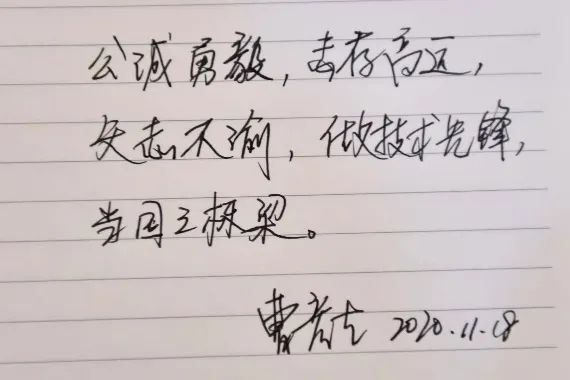 公诚勇毅，志存高远，
矢志不渝，做技术先锋，
当国之栋梁。
曹 2020.11.18